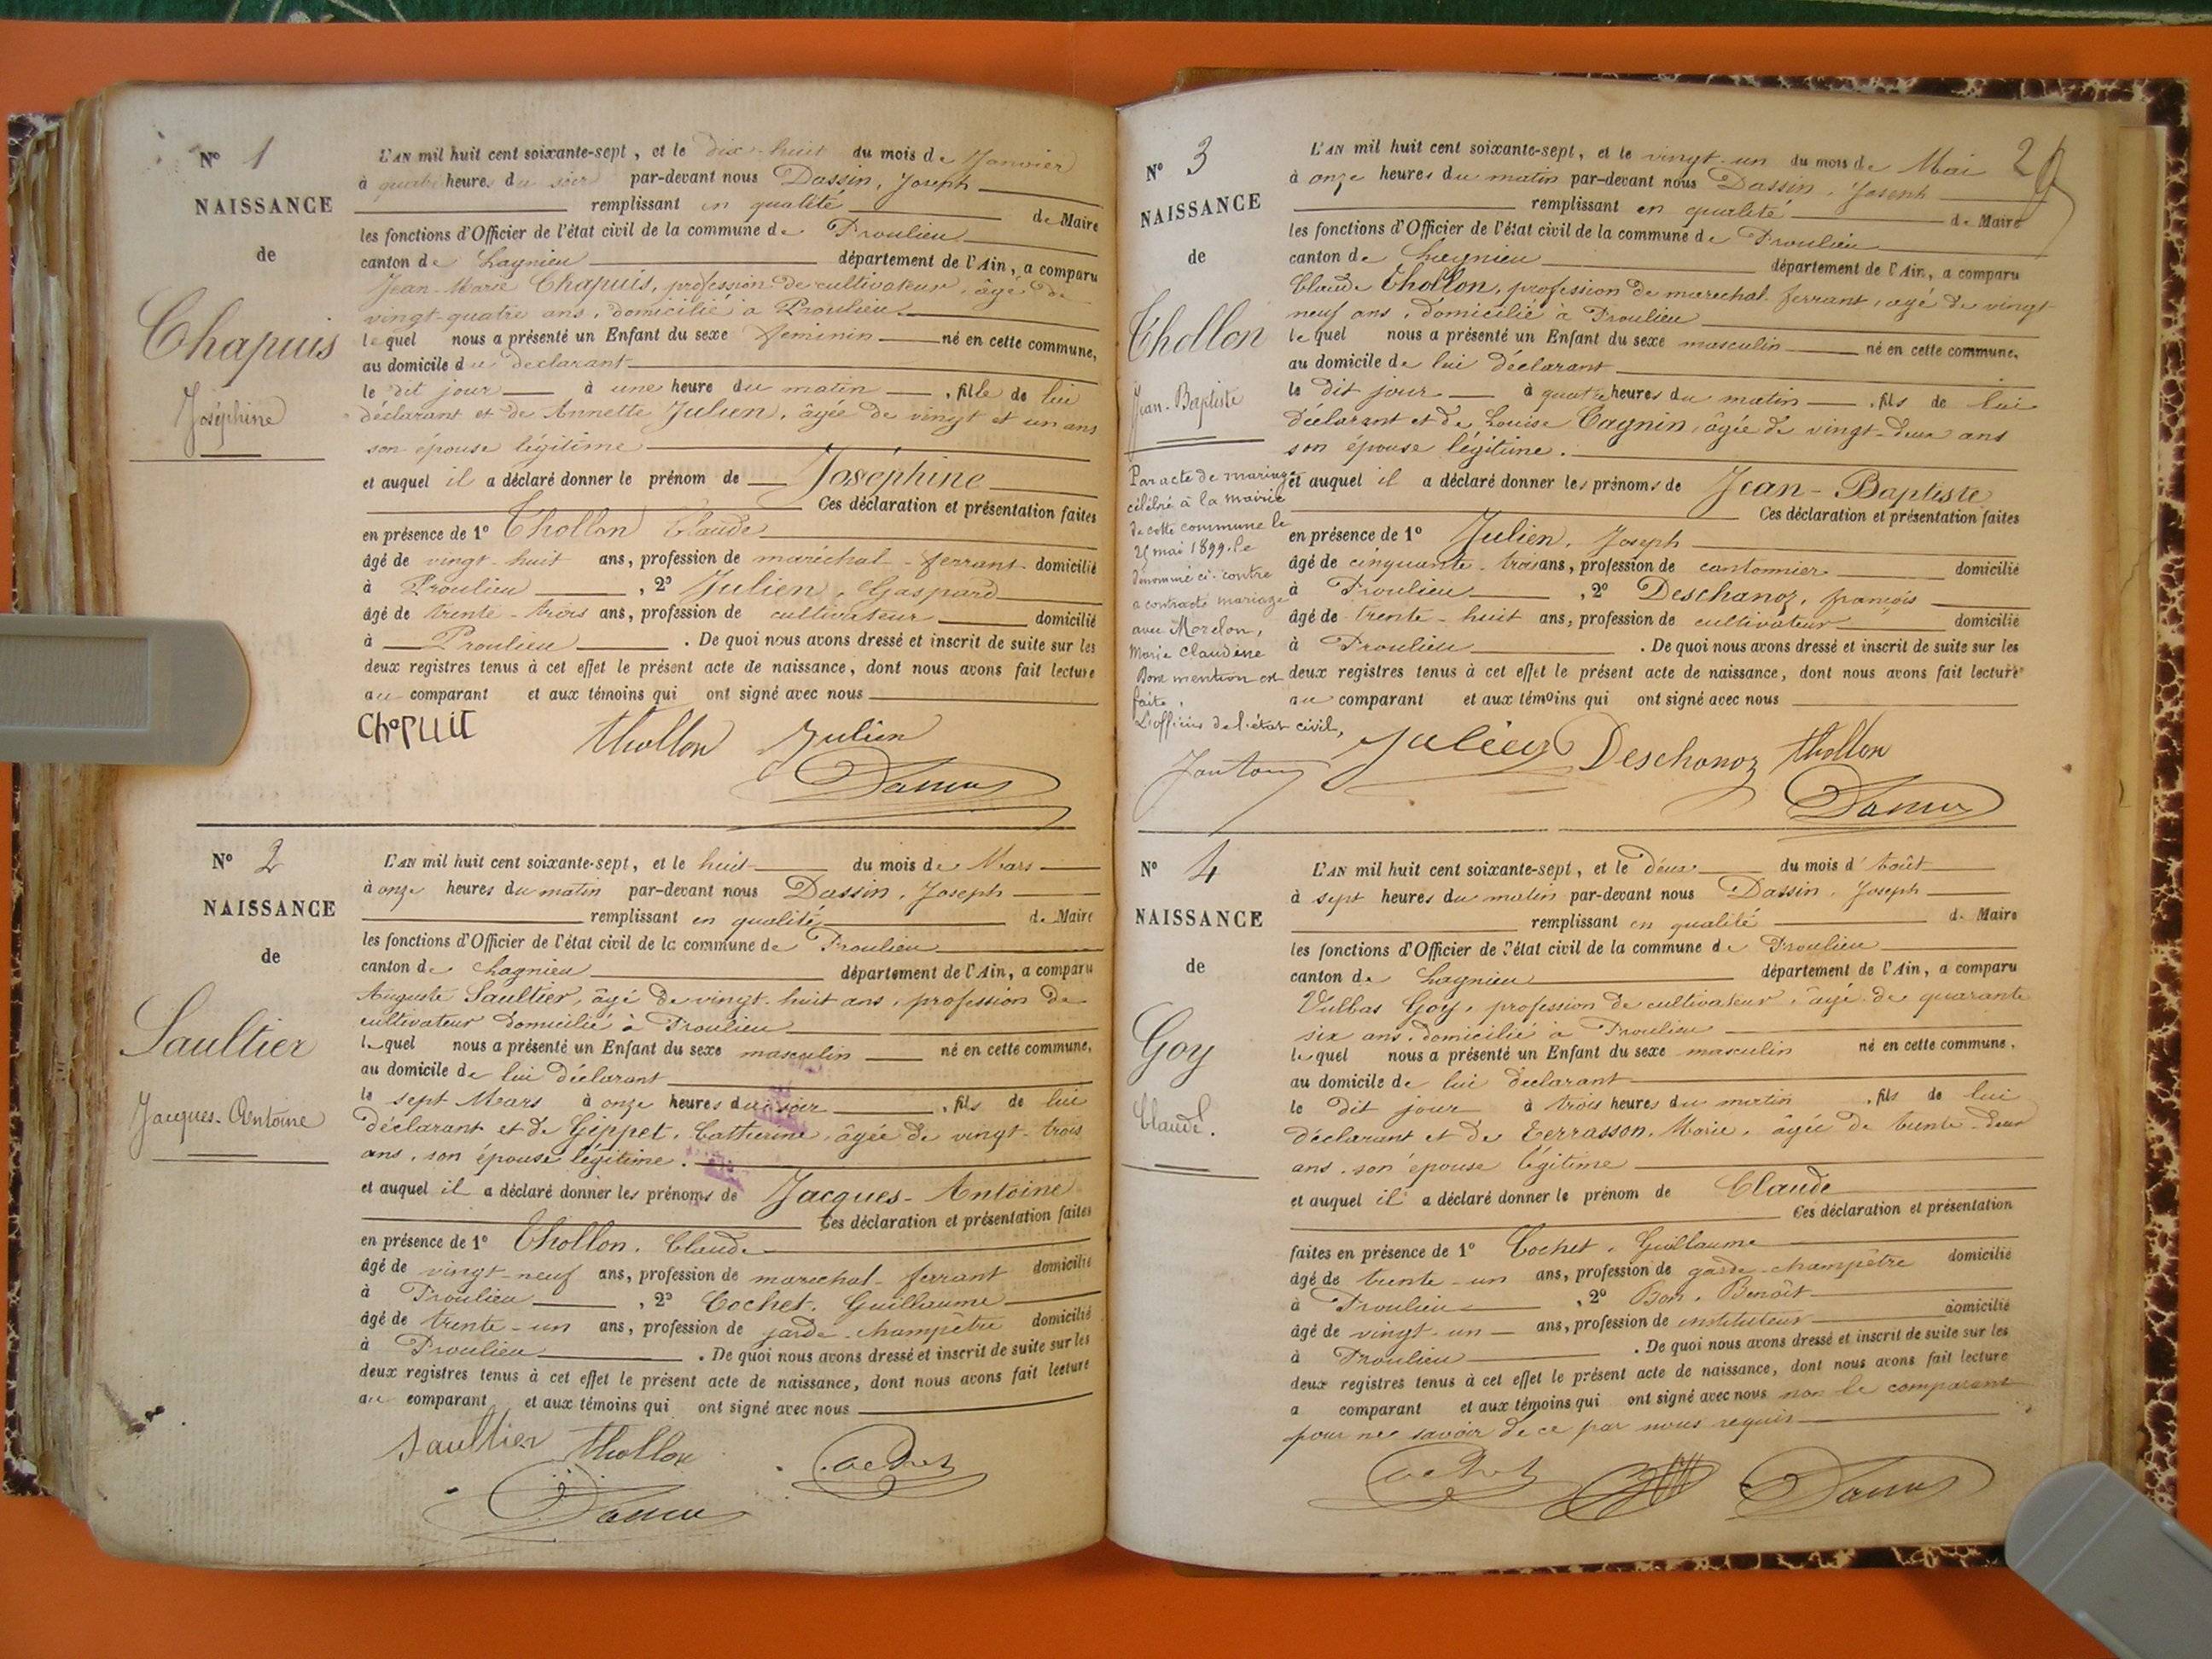 N° 1
NAISSANCE
de
Chapuis
Joséphine
L'AN mil huit cent soixante-sept, et le dix-huit du mois de Janvier
à quatre heures du soir par-devant nous Dassin, Joseph
remplissant en qualité de Maire
les fonctions d'Officier de l'état civil de la commune de Proulieu
canton de Lagnieu département de l'Ain, a comparu
Jean-Marie Chapuis, profession de cultivateur, âgé de
vingt-quatre ans, domicilié à Proulieu
lequel nous a présenté un Enfant du sexe féminin né en cette commune,
au domicile du déclarant
le dit jour à une heure du matin, fille de lui
déclarant et de Annette Julien, âgée de vingt et un ans
son épouse légitime
et auquel il a déclaré donner le prénom de Joséphine
Ces déclaration et présentation faites
en présence de 1° Thollon Claude
âgé de vingt-huit ans, profession de maréchal-ferrant domicilié
à Proulieu, 2° Julien, Gaspard
âgé de trente-trois ans, profession de cultivateur domicilié
à Proulieu. De quoi nous avons dressé et inscrit de suite sur les
deux registres tenus à cet effet le présent acte de naissance, dont nous avons fait lecture
au comparant et aux témoins qui ont signé avec nous
Chapuit Thollon Julien
Dassin
N° 2
NAISSANCE
de
Saultier
Jacques-Antoine
L'AN mil huit cent soixante-sept, et le huit du mois de Mars
à onze heures du matin par-devant nous Dassin, Joseph
remplissant en qualité de Maire
les fonctions d'Officier de l'état civil de la commune de Proulieu
canton de Lagnieu département de l'Ain, a comparu
Auguste Saultier, âgé de vingt-huit ans, profession de
cultivateur domicilié à Proulieu
lequel nous a présenté un Enfant du sexe masculin né en cette commune,
au domicile de lui déclarant
le sept Mars à onze heures du soir, fils de lui
déclarant et de Geppet, Catherine, âgée de vingt-trois
ans, son épouse légitime.
et auquel il a déclaré donner les prénoms de Jacques-Antoine
Ces déclaration et présentation faites
en présence de 1° Thollon, Claude
âgé de vingt-neuf ans, profession de marechal-ferrant domicilié
à Proulieu, 2° Cochet, Guillaume
âgé de trente-un ans, profession de garde-champêtre domicilié
à Proulieu. De quoi nous avons dressé et inscrit de suite sur les
deux registres tenus à cet effet le présent acte de naissance, dont nous avons fait lecture
au comparant et aux témoins qui ont signé avec nous
Saultier Thollon Cochet
Dassin
N° 3
NAISSANCE
de
Thollon
Jean-Baptiste
Par acte de mariage
célébré à la mairie
de cette commune le
25 mai 1899, le
dénommé ci-contre
a contracté mariage
avec Morelon,
Marie Claudine
Dont mention est
faite.
L'officier de l'état civil,
29
L'AN mil huit cent soixante-sept, et le vingt-un du mois de Mai
à onze heures du matin par-devant nous Dassin, Joseph
remplissant en qualité de Maire
les fonctions d'Officier de l'état civil de la commune de Proulieu
canton de Lagnieu département de l'Ain, a comparu
Claude Thollon, profession de marechal-ferrant, âgé de vingt
neuf ans, domicilié à Proulieu
lequel nous a présenté un Enfant du sexe masculin né en cette commune,
au domicile de lui déclarant
le dit jour à quatre heures du matin, fils de lui
déclarant et de Louise Cagnin, âgée de vingt-deux ans
son épouse légitime.
et auquel il a déclaré donner les prénoms de Jean-Baptiste
Ces déclaration et présentation faites
en présence de 1° Julien, Joseph
âgé de cinquante-trois ans, profession de cantonnier domicilié
à Proulieu, 2° Deschanoz, françois
âgé de trente-huit ans, profession de cultivateur domicilié
à Proulieu. De quoi nous avons dressé et inscrit de suite sur les
deux registres tenus à cet effet le présent acte de naissance, dont nous avons fait lecture
au comparant et aux témoins qui ont signé avec nous
Julien Deschanoz Thollon
Dassin
N° 4
NAISSANCE
de
Goy
Claude.
L'AN mil huit cent soixante-sept, et le deux du mois d'Août
à sept heures du matin par-devant nous Dassin, Joseph
remplissant en qualité de Maire
les fonctions d'Officier de l'état civil de la commune de Proulieu
canton de Lagnieu département de l'Ain, a comparu
Vulbas Goy, profession de cultivateur, âgé de quarante
six ans, domicilié à Proulieu
lequel nous a présenté un Enfant du sexe masculin né en cette commune,
au domicile de lui declarant
le dit jour à trois heures du matin, fils de lui
déclarant et de Terrasson, Marie, âgée de trente-deux
ans, son épouse légitime
et auquel il a déclaré donner le prénom de Claude
Ces déclaration et présentation
faites en présence de 1° Cochet, Guillaume
âgé de trente-un ans, profession de garde-champêtre domicilié
à Proulieu, 2° Bon, Benoît
âgé de vingt-un ans, profession de instituteur domicilié
à Proulieu. De quoi nous avons dressé et inscrit de suite sur les
deux registres tenus à cet effet le présent acte de naissance, dont nous avons fait lecture
a comparant et aux témoins qui ont signé avec nous non le comparant
pour ne savoir de ce par nous requis
Cochet Dassin